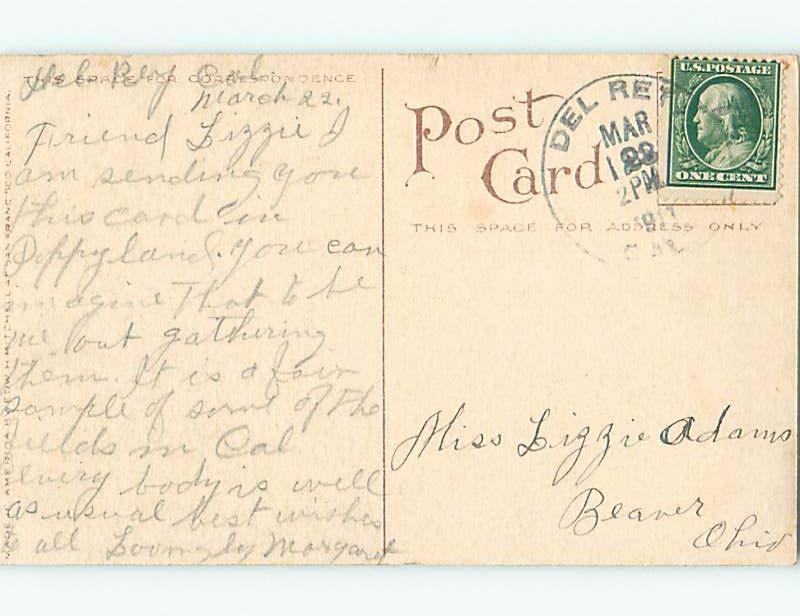 THIS SPACE FOR CORRESPONDENCE
Del Rey Cal
March 22.
Friend Lizzie I
am sending you
this card in
Poppyland. you can
imagine That to be
me out gathering
them. It is a fair
sample of some of the
fields in Cal
every body is well
as usual best wishes
to all Lovingly Margaret
MADE IN AMERICA BY EDW. H. MITCHELL AT SAN FRANCISCO CALIFORNIA.
Post
Card
THIS SPACE FOR ADDRESS ONLY
DEL REY
MAR
2PM
1911
CAL
U.S. POSTAGE
ONE CENT
Miss Lizzie Adams
Beaver
Ohio